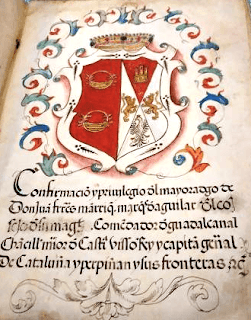 Confirmacio y preuilegio dl mayoradgo de
Don Juā frñs mārriq, marqs daguilar dl cō
sejo d su magt. Comēdador d guadalcanal
Chācill' mior d Castª Visso Rey y capitā gēnal
De Cataluña y perpiñan y sus fronteras